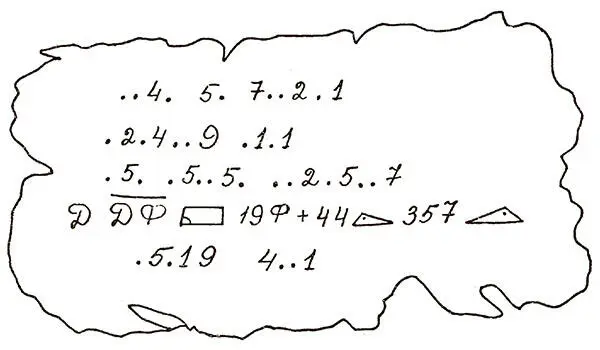 ..4. 5. 7..2.1
.2.4..9 .1.1
.5. .5..5. ..2.5..7
Д ДФ 19Ф+44 357
.5.19 4..1